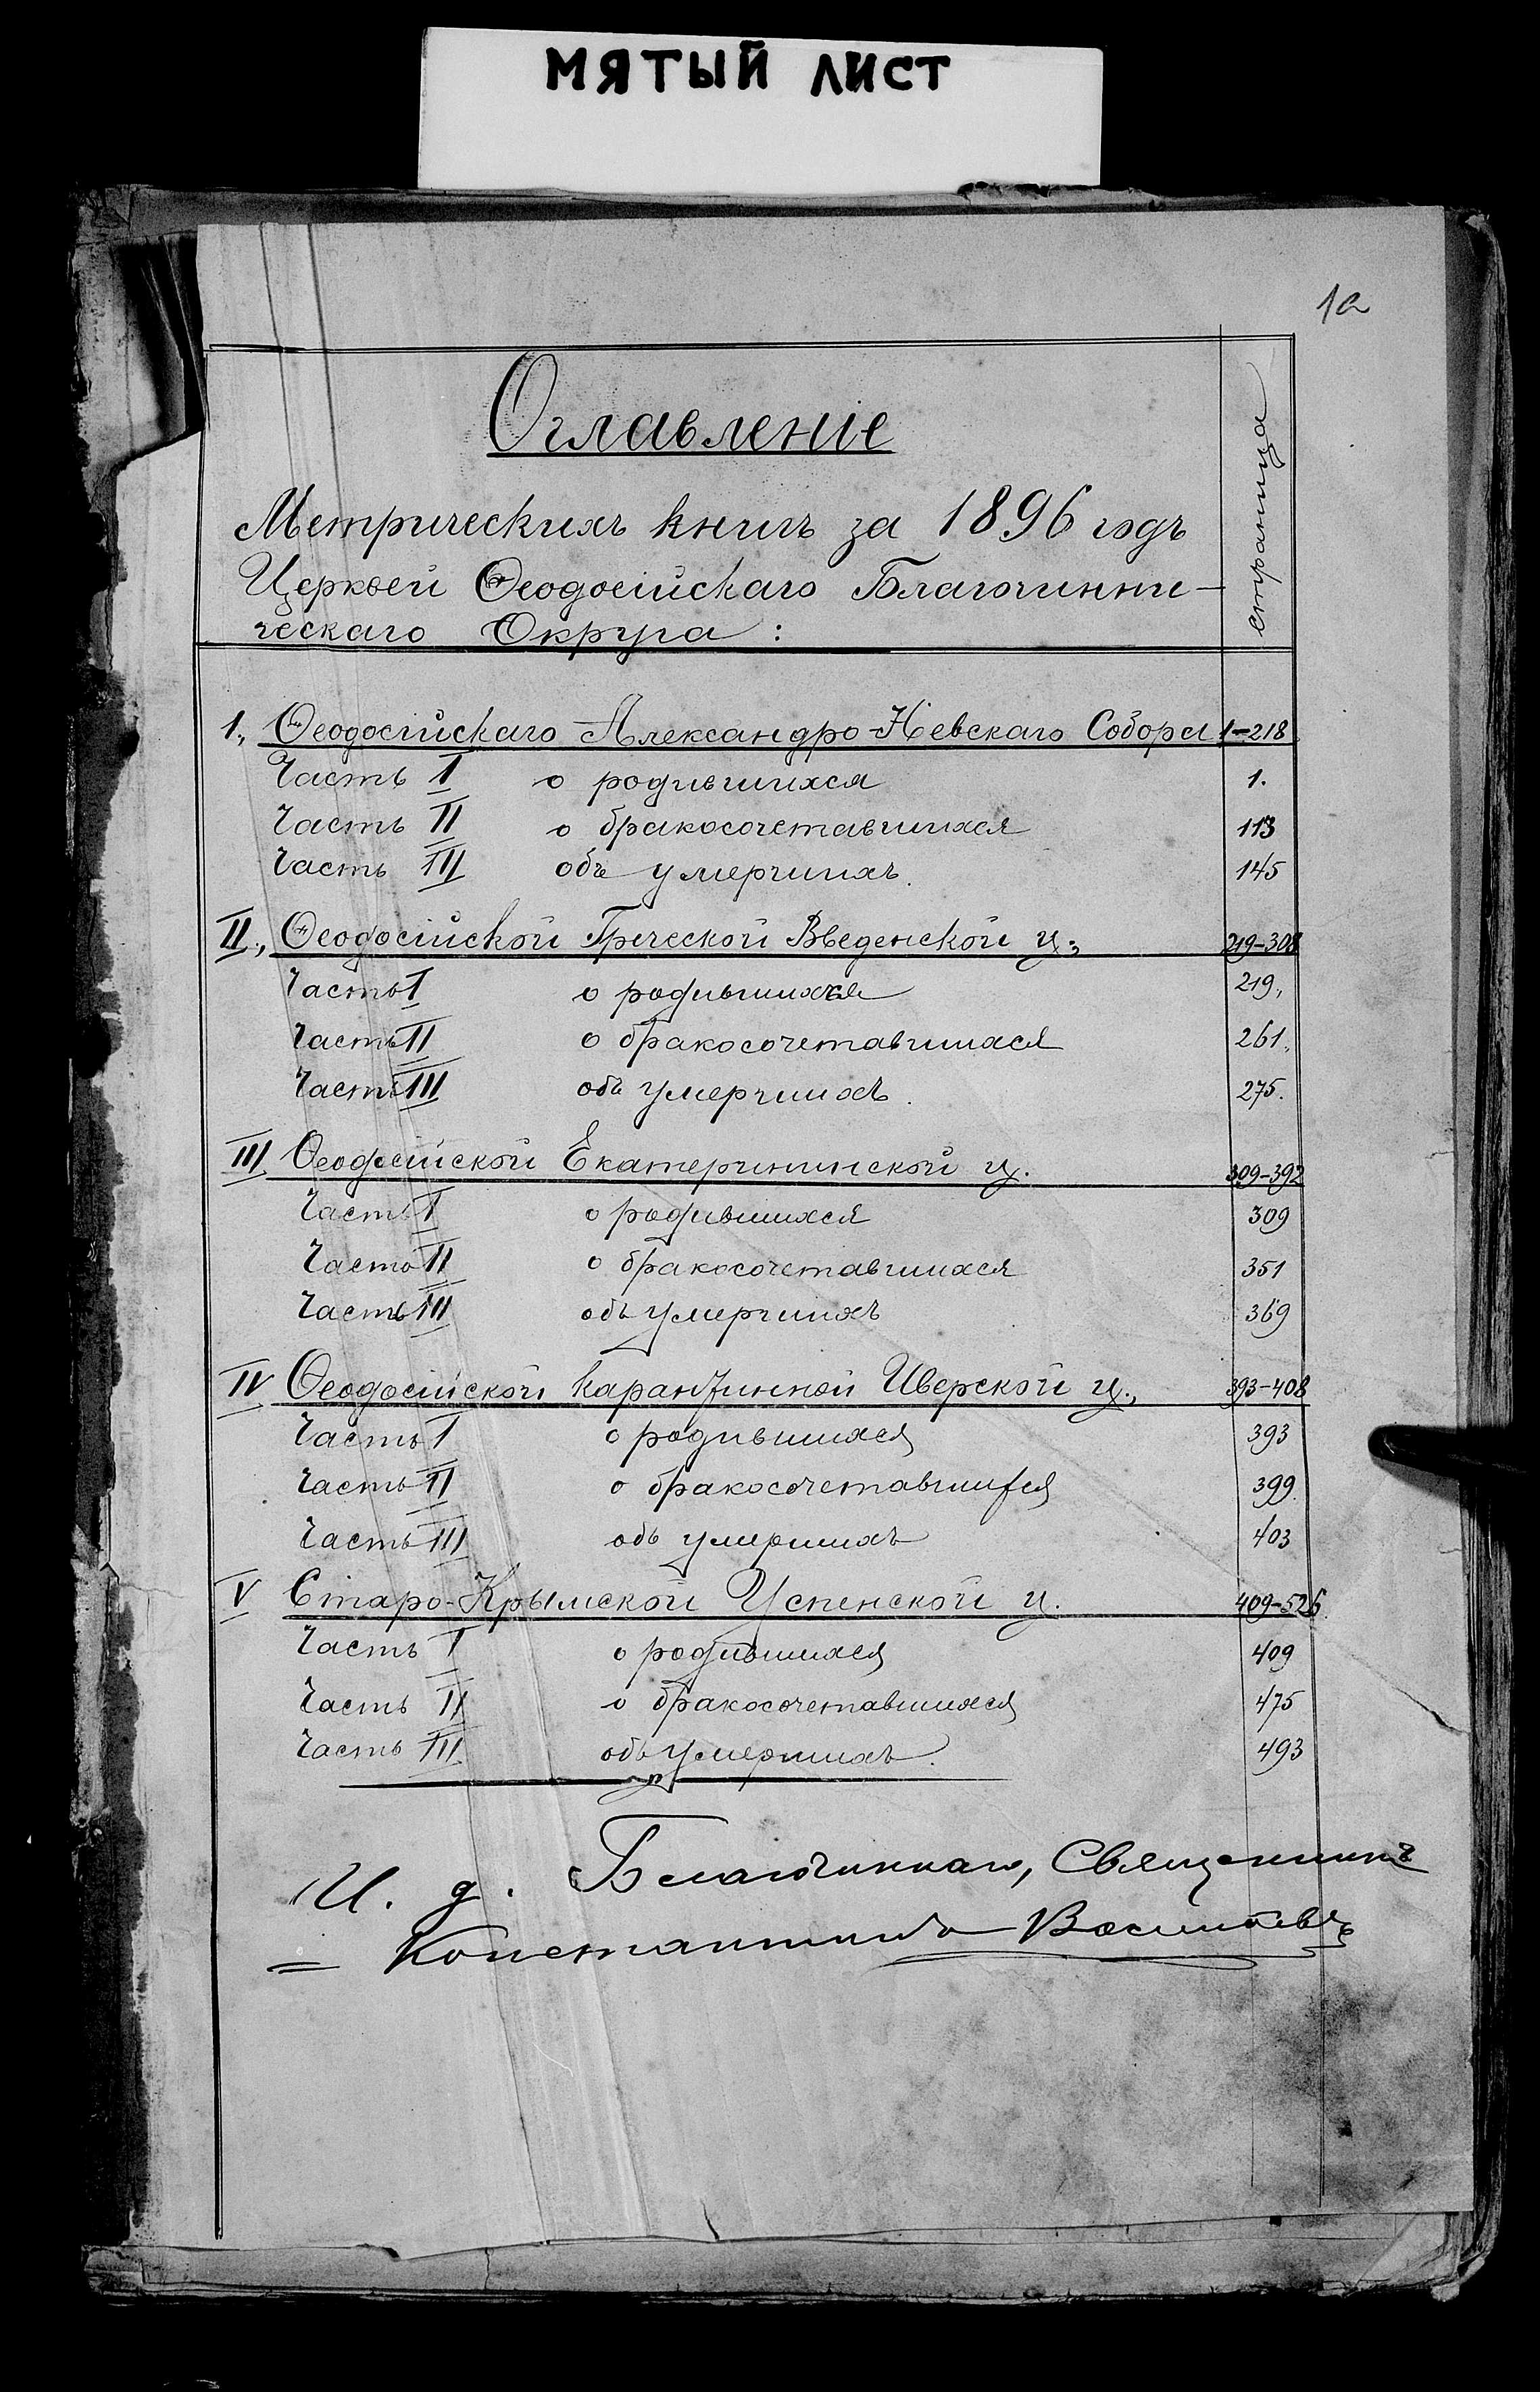 МЯТЫЙ ЛИСТ
1а
Оглавленіе
страница
Метрическихъ книгъ за 1896 годъ
Церквей Ѳеодосійскаго Благочинни-
ческаго Округа:
1., Ѳеодосійскаго Александро-Невскаго Собора 1-218
Часть I о родившихся 1.
Часть II о бракосочетавшихся 113
Часть III объ умершихъ. 145
II., Ѳеодосійской Греческой Введенской ц., 219-308
Часть I о родившихся 219,
Часть II о бракосочетавшихся 261.
Часть III объ умершихъ. 275.
III Ѳеодосійской Екатерининской ц. 309-392
Часть I о родившихся 309
Часть II о бракосочетавшихся 351
Часть III объ умершихъ 369
IV Ѳеодосійской Карантинной Иверской ц., 393-408
Часть I о родившихся 393
Часть II о бракосочетавшихся 399.
Часть III объ умершихъ 403
V Старо-Крымской Успенской ц. 409-526
Часть I о родившихся 409
Часть II о бракосочетавшихся 475
Часть III объ умершихъ. 493
И. д. Благочиннаго, Священникъ
Константинъ